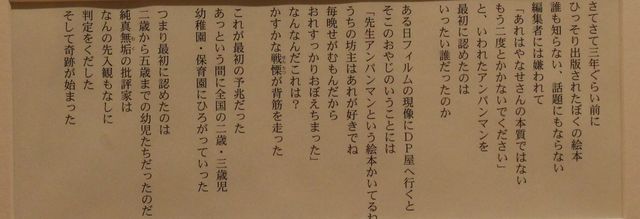 さてさて三年ぐらい前に
ひっそり出版されたぼくの絵本
誰も知らない、話題にもならない
編集者には嫌われて
「あれはやなせさんの本質ではない
もう二度とかかないでください」
と、いわれたアンパンマンを
最初に認めたのは
いったい誰だったのか
ある日フィルムの現像にDP屋へ行くと
そこのおやじのいうことには
「先生アンパンマンという絵本かいてるね
うちの坊主はあれが好きでね
毎晩せがむもんだから
おれすっかりおぼえちまった」
なんなんだこれは?
かすかな戦慄が背筋を走った
これが最初の予兆だった
あっという間に全国の二歳・三歳児
幼稚園・保育園にひろがっていった
つまり最初に認めたのは
二歳から五歳までの幼児たちだったのだ
純真無垢の批評家は
なんの先入観もなしに
判定をくだした
そして奇跡が始まった